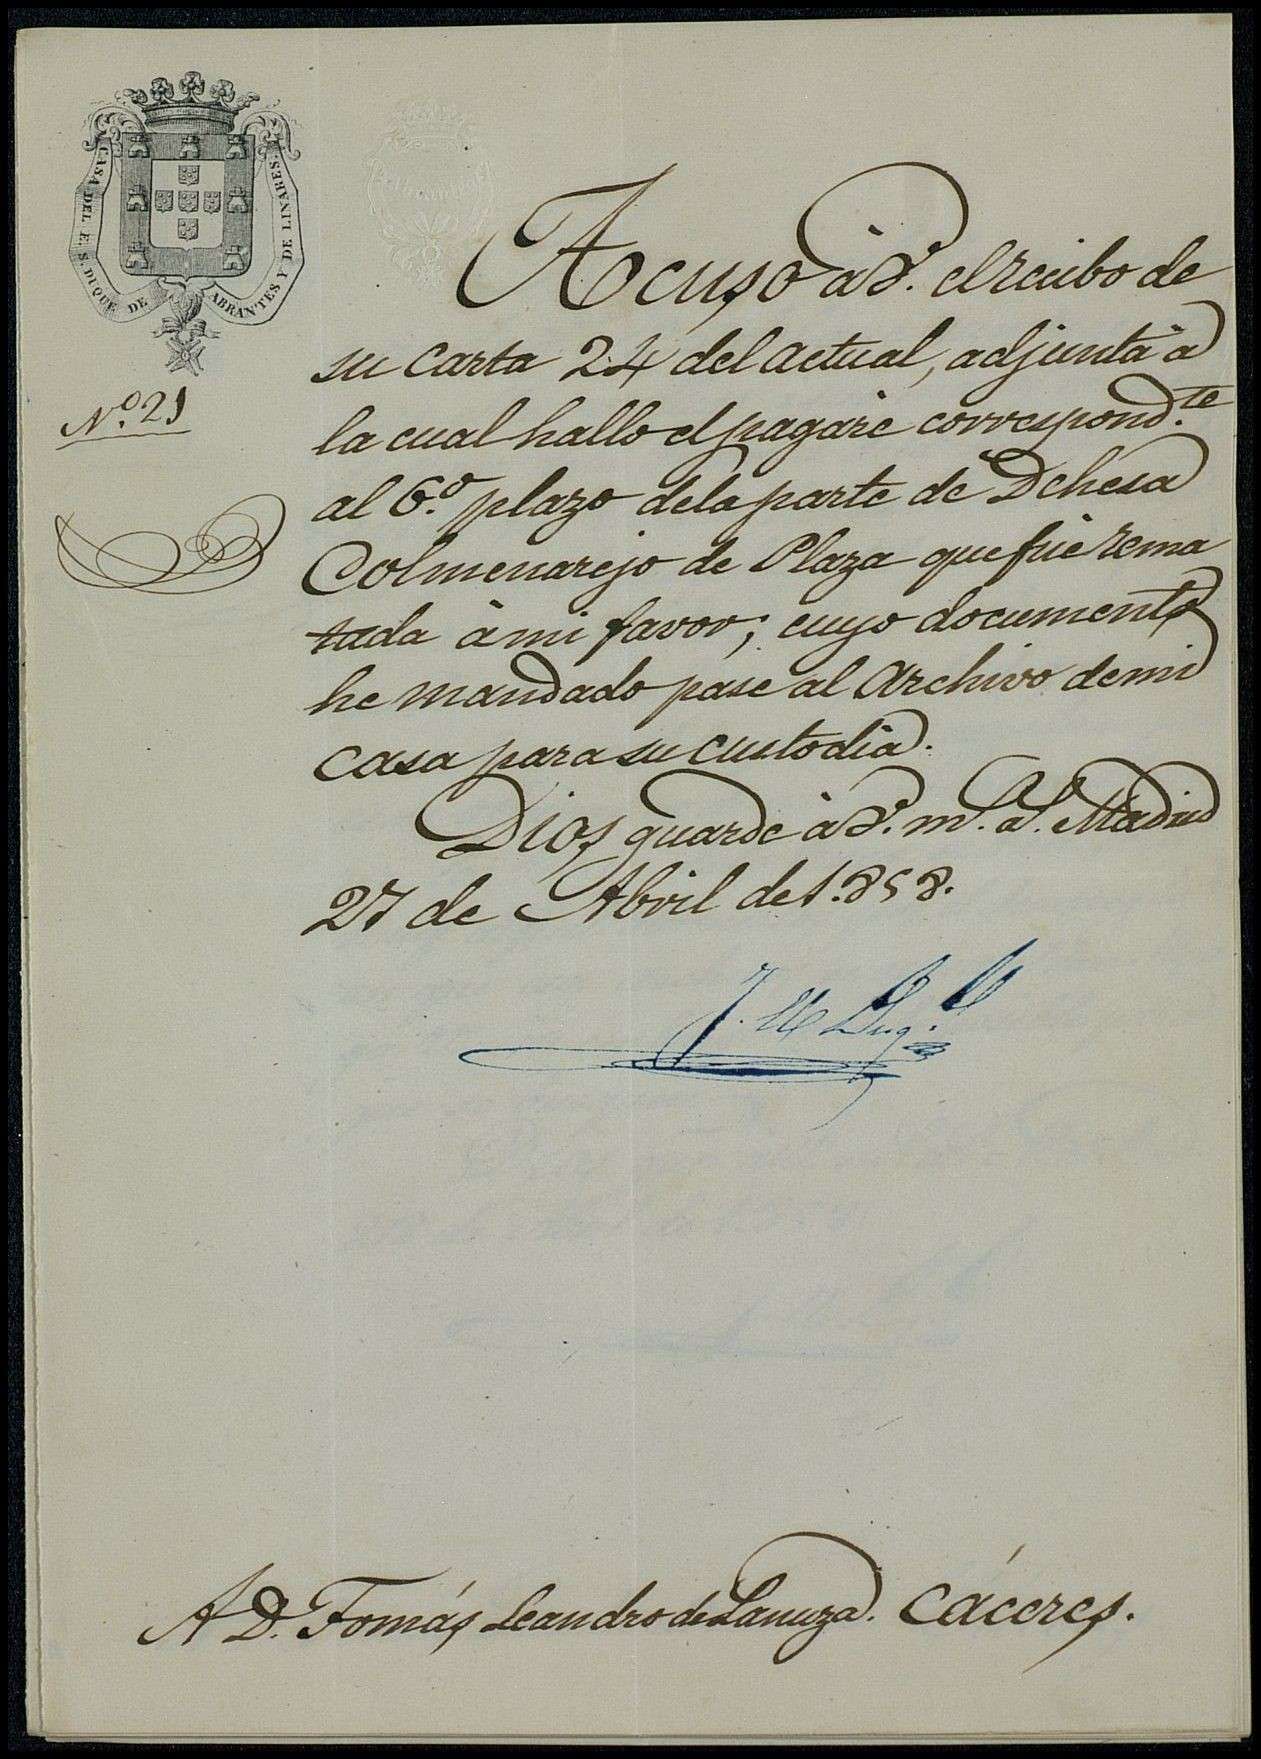 CASA DEL E. S. DUQUE DE ABRANTES Y DE LINARES.
Nº. 21
Acuso à V. el recibo de
su carta 24 del actual, adjunta à
la cual hallo el pagaré correspond.te
al 6.º plazo dela parte de Dehesa
Colmenarejo de Plaza que fuè rema
tada à mi favor; cuyo documento
he mandado pase al Archivo demi
casa para su custodia.
Dios guarde à V. m.s a.s Madrid
27 de Abril de 1.858.
A D. Tomás Leandro de Lanuza. Cáceres.